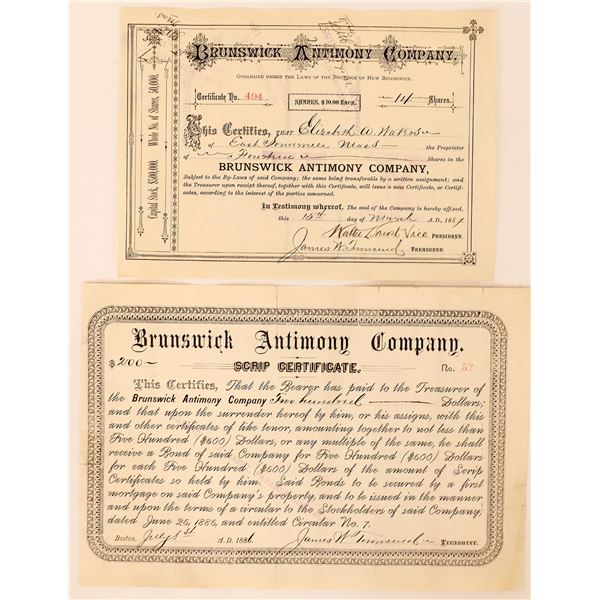 BRUNSWICK ANTIMONY COMPANY.
ORGANIZED UNDER THE LAWS OF THE PROVINCE OF NEW BRUNSWICK.
Certificate No. 494 SHARES, $10.00 EACH. 14 Shares.
This Certifies, THAT Elizabeth A.
of East Somerville Mass the Proprietor
of Fourteen Shares in the
BRUNSWICK ANTIMONY COMPANY,
Subject to the By-Laws of said Company; the same being transferable by a written assignment; and
the Treasurer upon receipt thereof, together with this Certificate, will issue a new Certificate, or Certifi-
cates, according to the interest of the parties concerned.
In Testimony whereof, The seal of the Company is hereby affixed,
this 15th day of March A.D., 188
Vice PRESIDENT.
James W. Townsend TREASURER.
Capital Stock, $500,000. Whole No. of Shares, 50,000.
Brunswick Antimony Company.
$200- SCRIP CERTIFICATE. No. 52
This Certifies, That the Bearer has paid to the Treasurer of
the Brunswick Antimony Company Two hundred Dollars;
and that upon the surrender hereof by him, or his assigns, with this
and other certificates of like tenor, amounting together to not less than
Five Hundred ($500) Dollars, or any multiple of the same, he shall
receive a Bond of said Company for Five Hundred ($500) Dollars
for each Five Hundred ($500) Dollars of the amount of Scrip
Certificates so held by him. Said Bonds to be secured by a first
mortgage on said Company's property, and to be issued in the manner
and upon the terms of a circular to the Stockholders of said Company,
dated June 25, 1886, and entitled Circular No. 7.
Boston, July 1st A.D. 1886. James W. Townsend Treasurer.